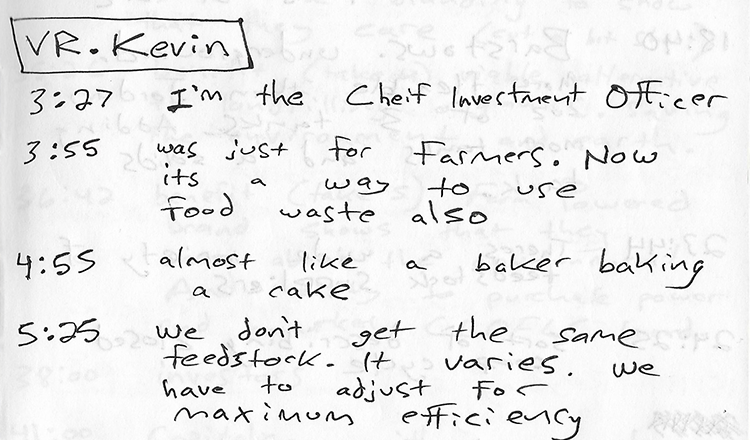 VR. Kevin
3:27 I'm the Cheif Investment Officer
3:55 was just for Farmers. Now
its a way to use
food waste also
4:55 almost like a baker baking
a cake
5:25 we don't get the same
feedstock. It varies. we
have to adjust for
maximum efficiency